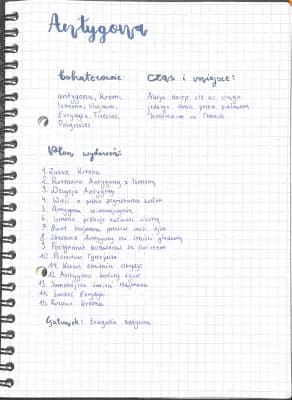 Antygona
bohaterowie:
antygona, Kreon,
Ismena, Hajmon,
Eurydyka, Tirezjas,
Polinejkes
czas i miejsce:
Akcja dzieje się w ciągu
jednego dnia przed pałacem
królewskim w Tebach
Plan wydarzeń:
1. Zakaz Kreona
2. Rozmowa Antygony z Ismeną
3. Decyzja Antygony
4. Wieść o próbie pogrzebania zwłok
5. Antygona
6. Ismena siostrę
7. Bunt Hajmona przeciw woli ojca
8. Skazanie Antygony na śmierć głodową
9. Pożegnanie bohaterki ze światem
10. Proroctwo Tyrezjasza
11. Kreon zmienia decyzję
12. Antygona życie
13. Samobójcza śmierć Hajmona
14. Śmierć Eurydyki
15. Rozpacz Kreona
Gatunek: tragedia antyczna